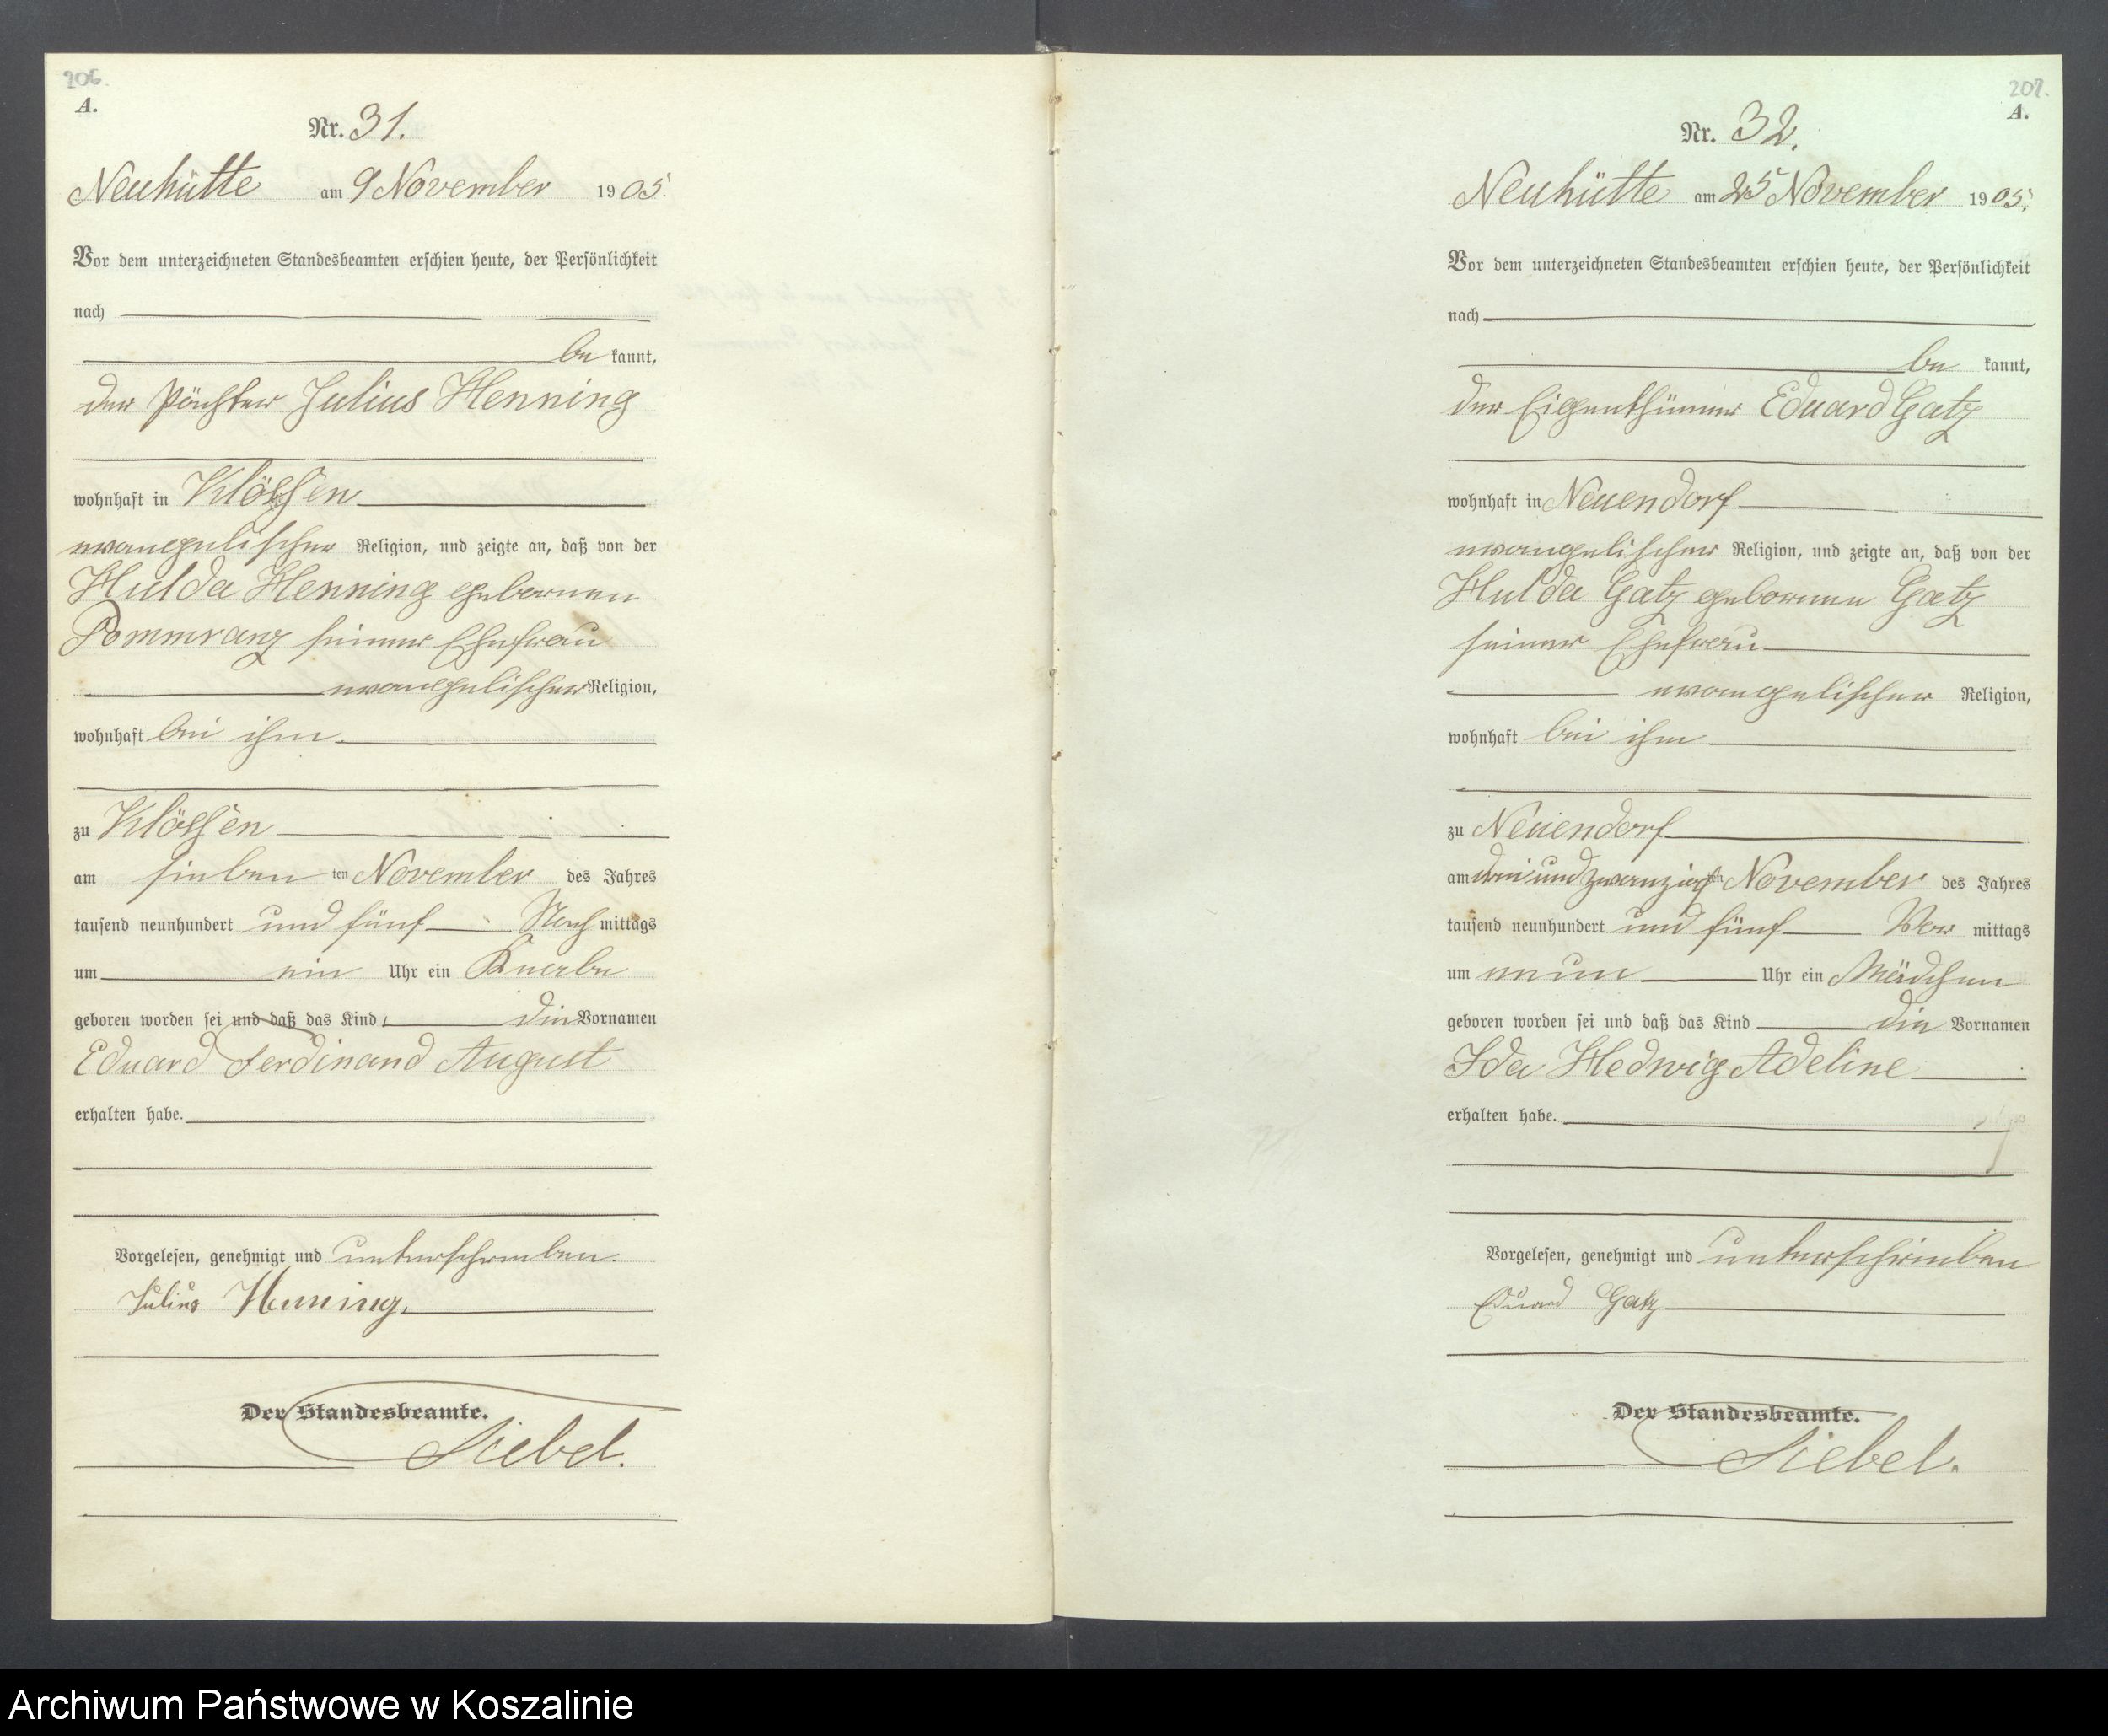 206.
A.
Nr. 31.
Neuhütte am 9 November 1905.
Vor dem unterzeichneten Standesbeamten erschien heute, der Persönlichkeit
nach
be kannt,
der Pächter Julius Henning
wohnhaft in Klössen
evangelischer Religion, und zeigte an, daß von der
Hulda Henning geborenen
Pommranz seiner Ehefrau
evangelischer Religion,
wohnhaft bei ihm
zu Klössen
am sieben ten November des Jahres
tausend neunhundert und fünf Nach mittags
um ein Uhr ein Knabe
geboren worden sei und daß das Kind die Vornamen
Eduard Ferdinand August
erhalten habe.
Vorgelesen, genehmigt und unterschrieben.
Julius Henning.
Der Standesbeamte.
Siebel.
207.
A.
Nr. 32.
Neuhütte am 25 November 1905.
Vor dem unterzeichneten Standesbeamten erschien heute, der Persönlichkeit
nach
be kannt,
der Eigenthümer Eduard Gatz
wohnhaft in Neuendorf
evangelischer Religion, und zeigte an, daß von der
Hulda Gatz geborenen Gatz
seiner Ehefrau
evangelischer Religion,
wohnhaft bei ihm
zu Neuendorf
am dreiundzwanzigsten November des Jahres
tausend neunhundert und fünf Vor mittags
um neun Uhr ein Mädchen
geboren worden sei und daß das Kind die Vornamen
Ida Hedwig Adeline
erhalten habe.
Vorgelesen, genehmigt und unterschrieben
Eduard Gatz
Der Standesbeamte.
Siebel.
Archiwum Państwowe w Koszalinie